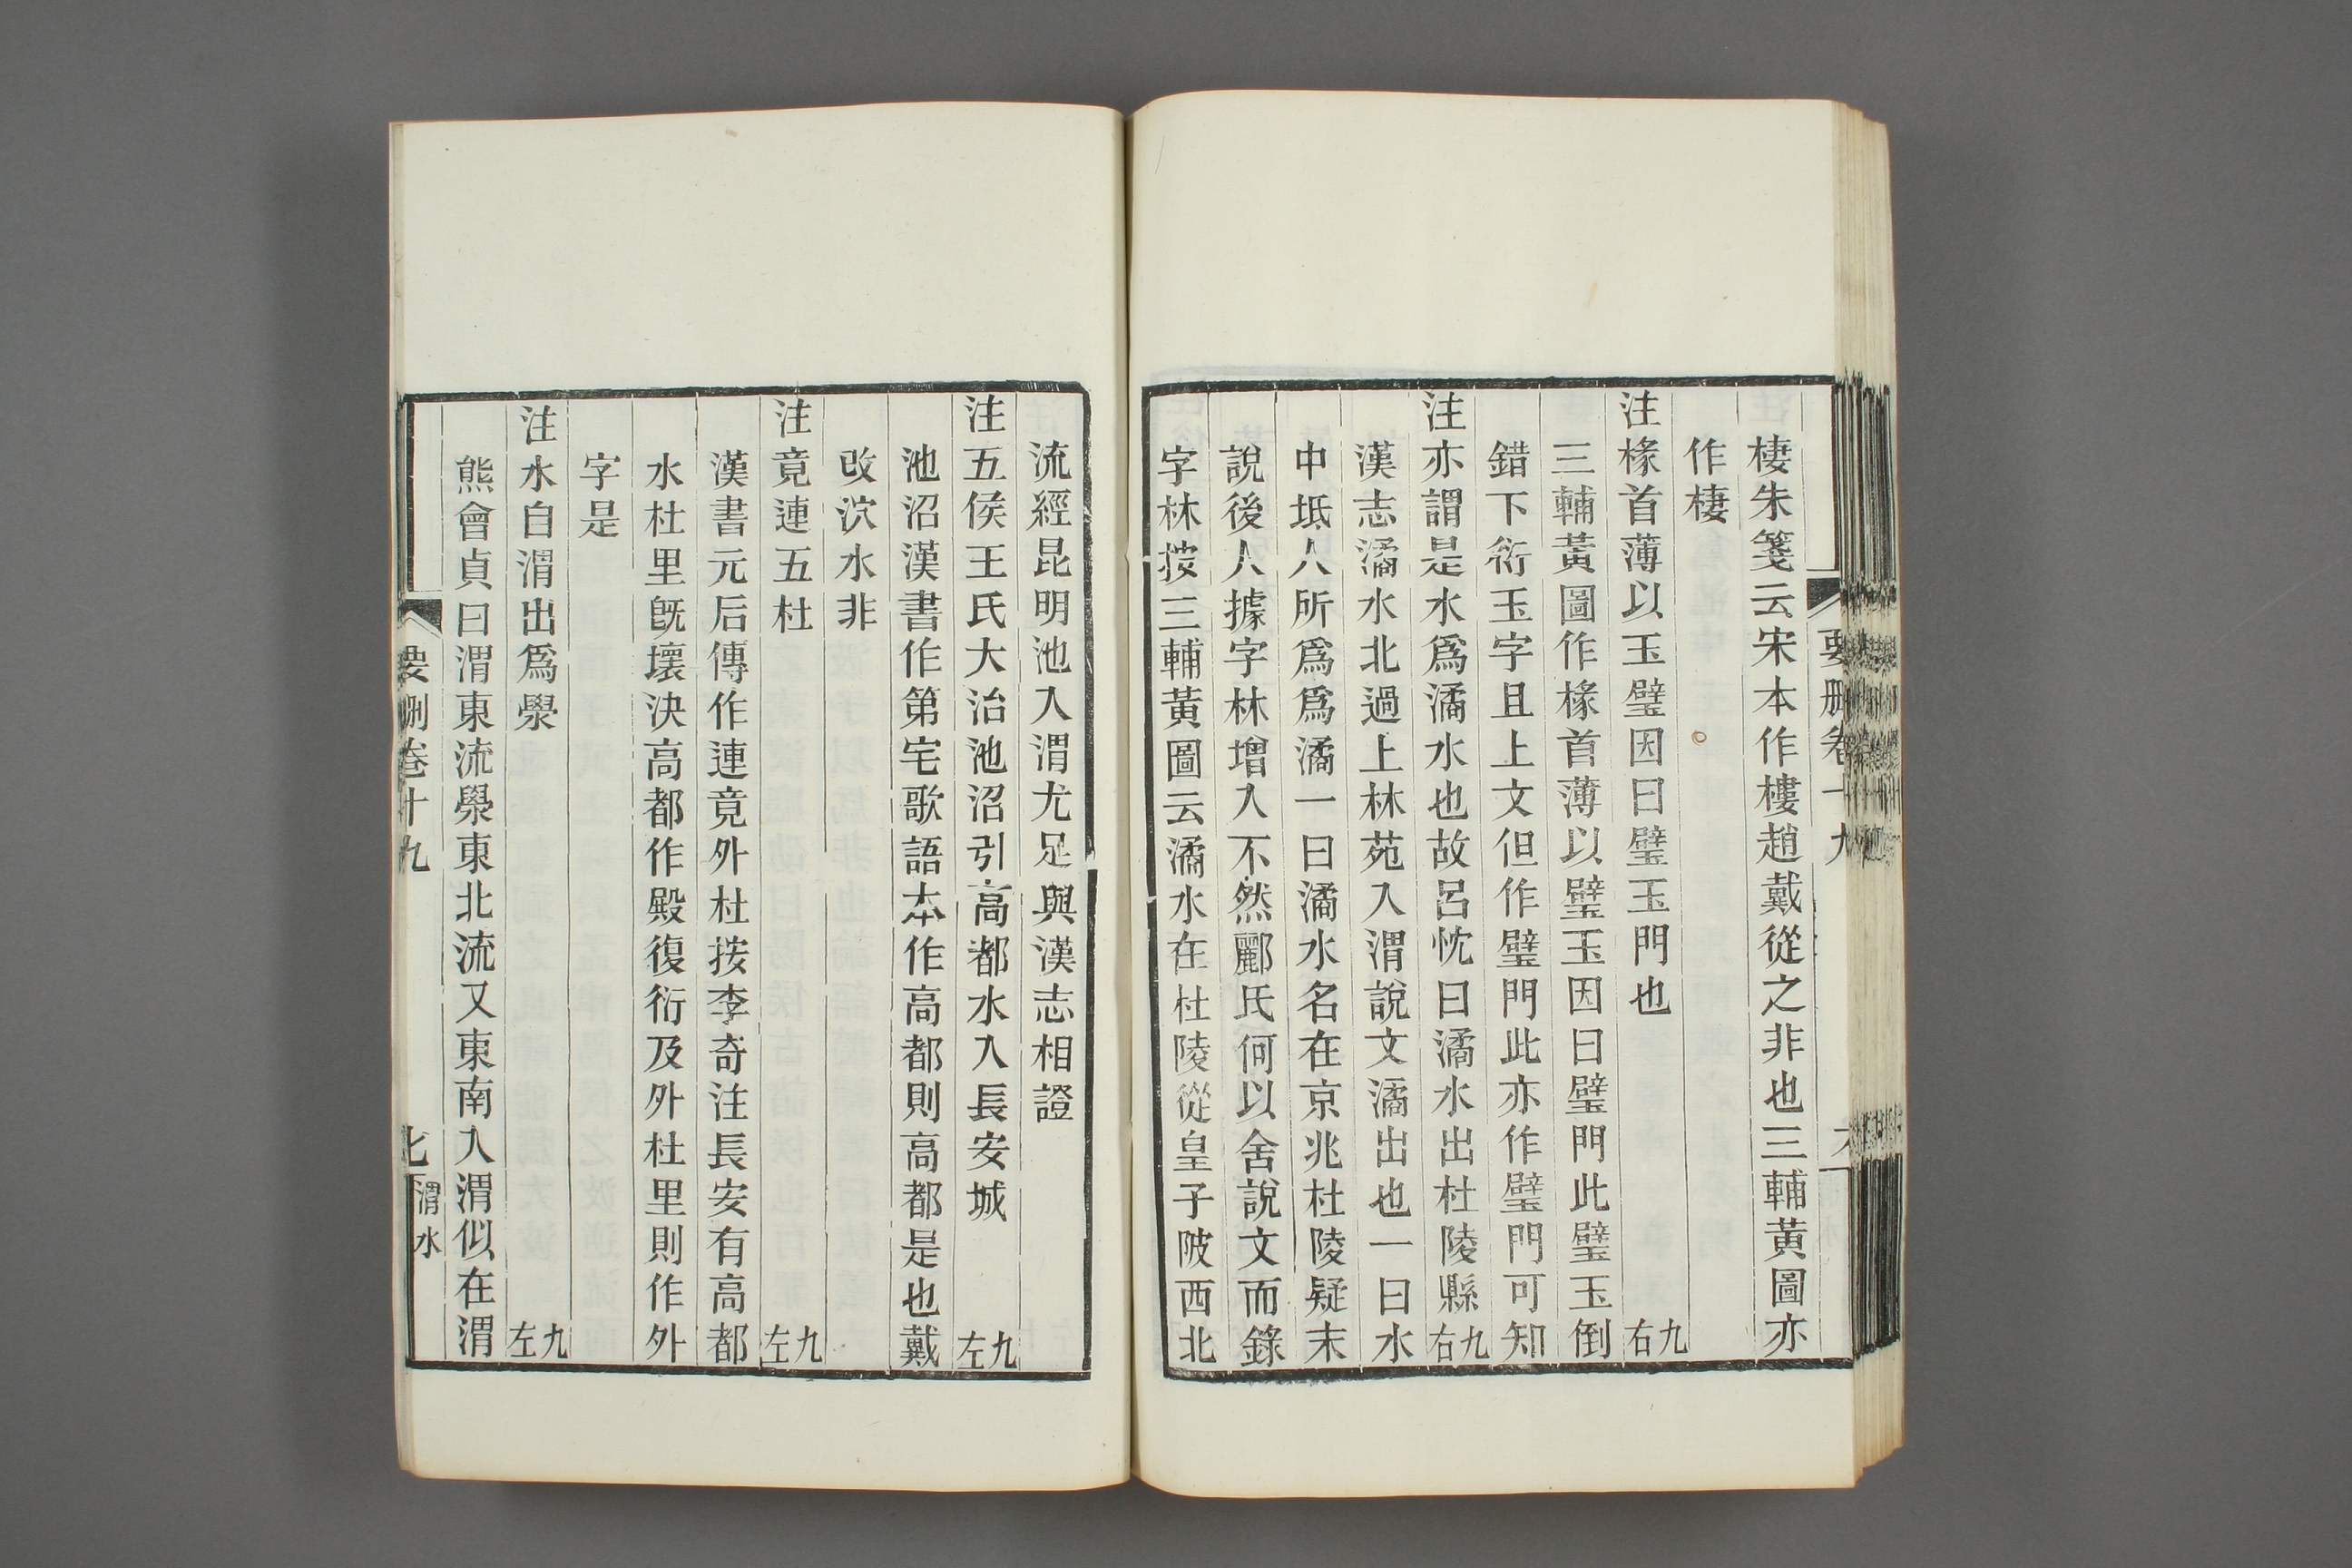 棲朱箋云宋本作樓趙戴從之非也三輔黃圖亦
作棲
注椽首薄以玉璧因曰璧玉門也 九右
三輔黃圖作椽首薄以璧玉因曰璧門此璧玉倒
錯下衍玉字且上文但作璧門此亦作璧門可知
注亦謂是水爲潏水也故呂忱曰潏水出杜陵縣 九右
漢志潏水北過上林苑入渭說文潏出也一曰水
中坻人所爲爲潏一曰潏水名在京兆杜陵疑末
說後人據字林增入不然酈氏何以舍說文而錄
字林按三輔黃圖云潏水在杜陵從皇子陂西北
流經昆明池入渭尤足與漢志相證
注五侯王氏大治池沼引高都水入長安城 九左
池沼漢書作第宅歌語本作高都則高都是也戴
改沇水非
注竟連五杜 九左
漢書元后傳作連竟外杜按李奇注長安有高都
水杜里旣壞決高都作殿復衍及外杜里則作外
字是
注水自渭出爲澩 九左
熊會貞曰渭東流澩東北流又東南入渭似在渭
要刪卷十九
七 渭水